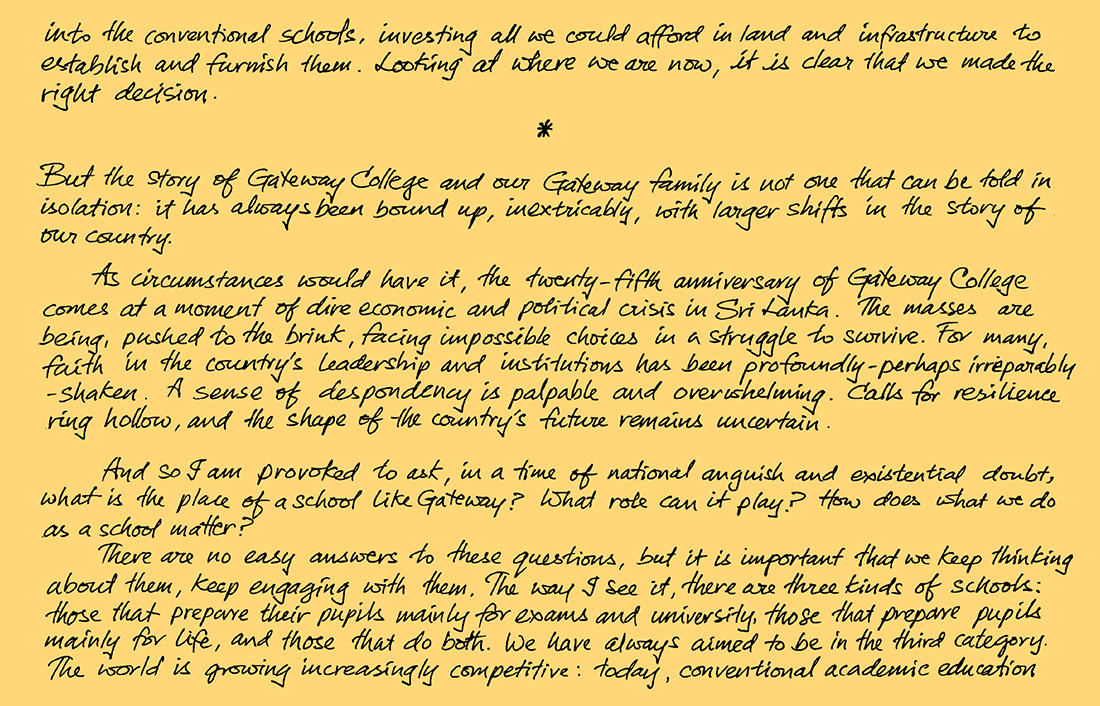 into the conventional schools, investing all we could afford in land and infrastructure to
establish and furnish them. Looking at where we are now, it is clear that we made the
right decision.
*
But the story of Gateway College and our Gateway family is not one that can be told in
isolation: it has always been bound up, inextricably, with larger shifts in the story of
our country.
As circumstances would have it, the twenty-fifth anniversary of Gateway College
comes at a moment of dire economic and political crisis in Sri Lanka. The masses are
being, pushed to the brink, facing impossible choices in a struggle to survive. For many,
faith in the country's leadership and institutions has been profoundly-perhaps irreparably
-shaken. A sense of despondency is palpable and overwhelming. Calls for resilience
ring hollow, and the shape of the country's future remains uncertain.
And so I am provoked to ask, in a time of national anguish and existential doubt,
what is the place of a school like Gateway? What role can it play? How does what we do
as a school matter?
There are no easy answers to these questions, but it is important that we keep thinking
about them, keep engaging with them. The way I see it, there are three kinds of schools:
those that prepare their pupils mainly for exams and university, those that prepare pupils
mainly for life, and those that do both. We have always aimed to be in the third category.
The world is growing increasingly competitive: today, conventional academic education